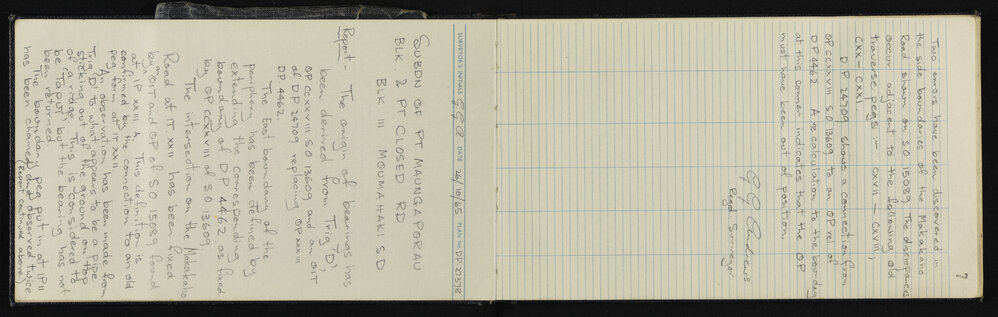 SURVEYOR'S INITIALS G.G.A DATE 26/10/65 PLAN NO. DP 27378
SUBDN OF PT MAUNGAPORAU
BLK 2 & PT CLOSED RD
BLK III MOUMAHAKI SD
Report - The origin of bearings has
been derived from Trig 'D',
OP CCXXVIII S.O 13609 and an OIT
of DP 24709 replacing OP XXII
DP 4462.
The East boundary of the
periphery has been defined by
extending the corresponding
boundary of D.P 4462 as fixed
by OP CCXXVIII of S.O 13609,
The intersection on the Makakaho
Road at IT XXII has been fixed
by OIT and OP of S.O 15089 found
at IP XXIII A. This definition is
confirmed by the connection to an old
peg found at IT XXII
An observation has been made from
Trig 'D' to what appears to be a pipe
sticking out of the ground on top
of a ridge. This is considered to
be 'TAPUI' but the bearing has not
been returned
The boundary peg put in at IP II
has been chained and observed twice
(Report continued above)
7
Two errors have been discovered in
the side boundaries of the Makakaho
Road shown on S.O 15089. The discrepancies
occur adjacent to the following old
traverse pegs:- CXVII - CXVIII,
CXX - CXXI.
D.P 24709 shows a connection from
OP CCXXVIII S.O 13609 to an OP rel of
DP 4462. A recalculation to the boundary
at this corner indicates that the OP
must have been out of position.
G G Andrews
Regd Surveyor